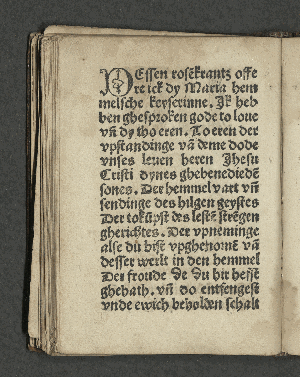 DEssen rosēkrantz offe
re ick dy Maria hem
melsche keyserinne. Jk heb
ben ghesproken gode to loue
vn̄ dy tho eren. To eren der
vpstandinge vā deme dode
vnses leuen heren Jhesu
Cristi dynes ghebenediedē
sones. Der hemmel vart vn̄
sendinge des hilgen geystes
Der tokūpst des lestē strēgen
gherichtes. Der vpneminge
alse du bist vpghenomē vā
desser werlt in den hemmel
Der froude de du hir hefst
ghehath. vn̄ do entfengest
vnde ewich beholden schalt